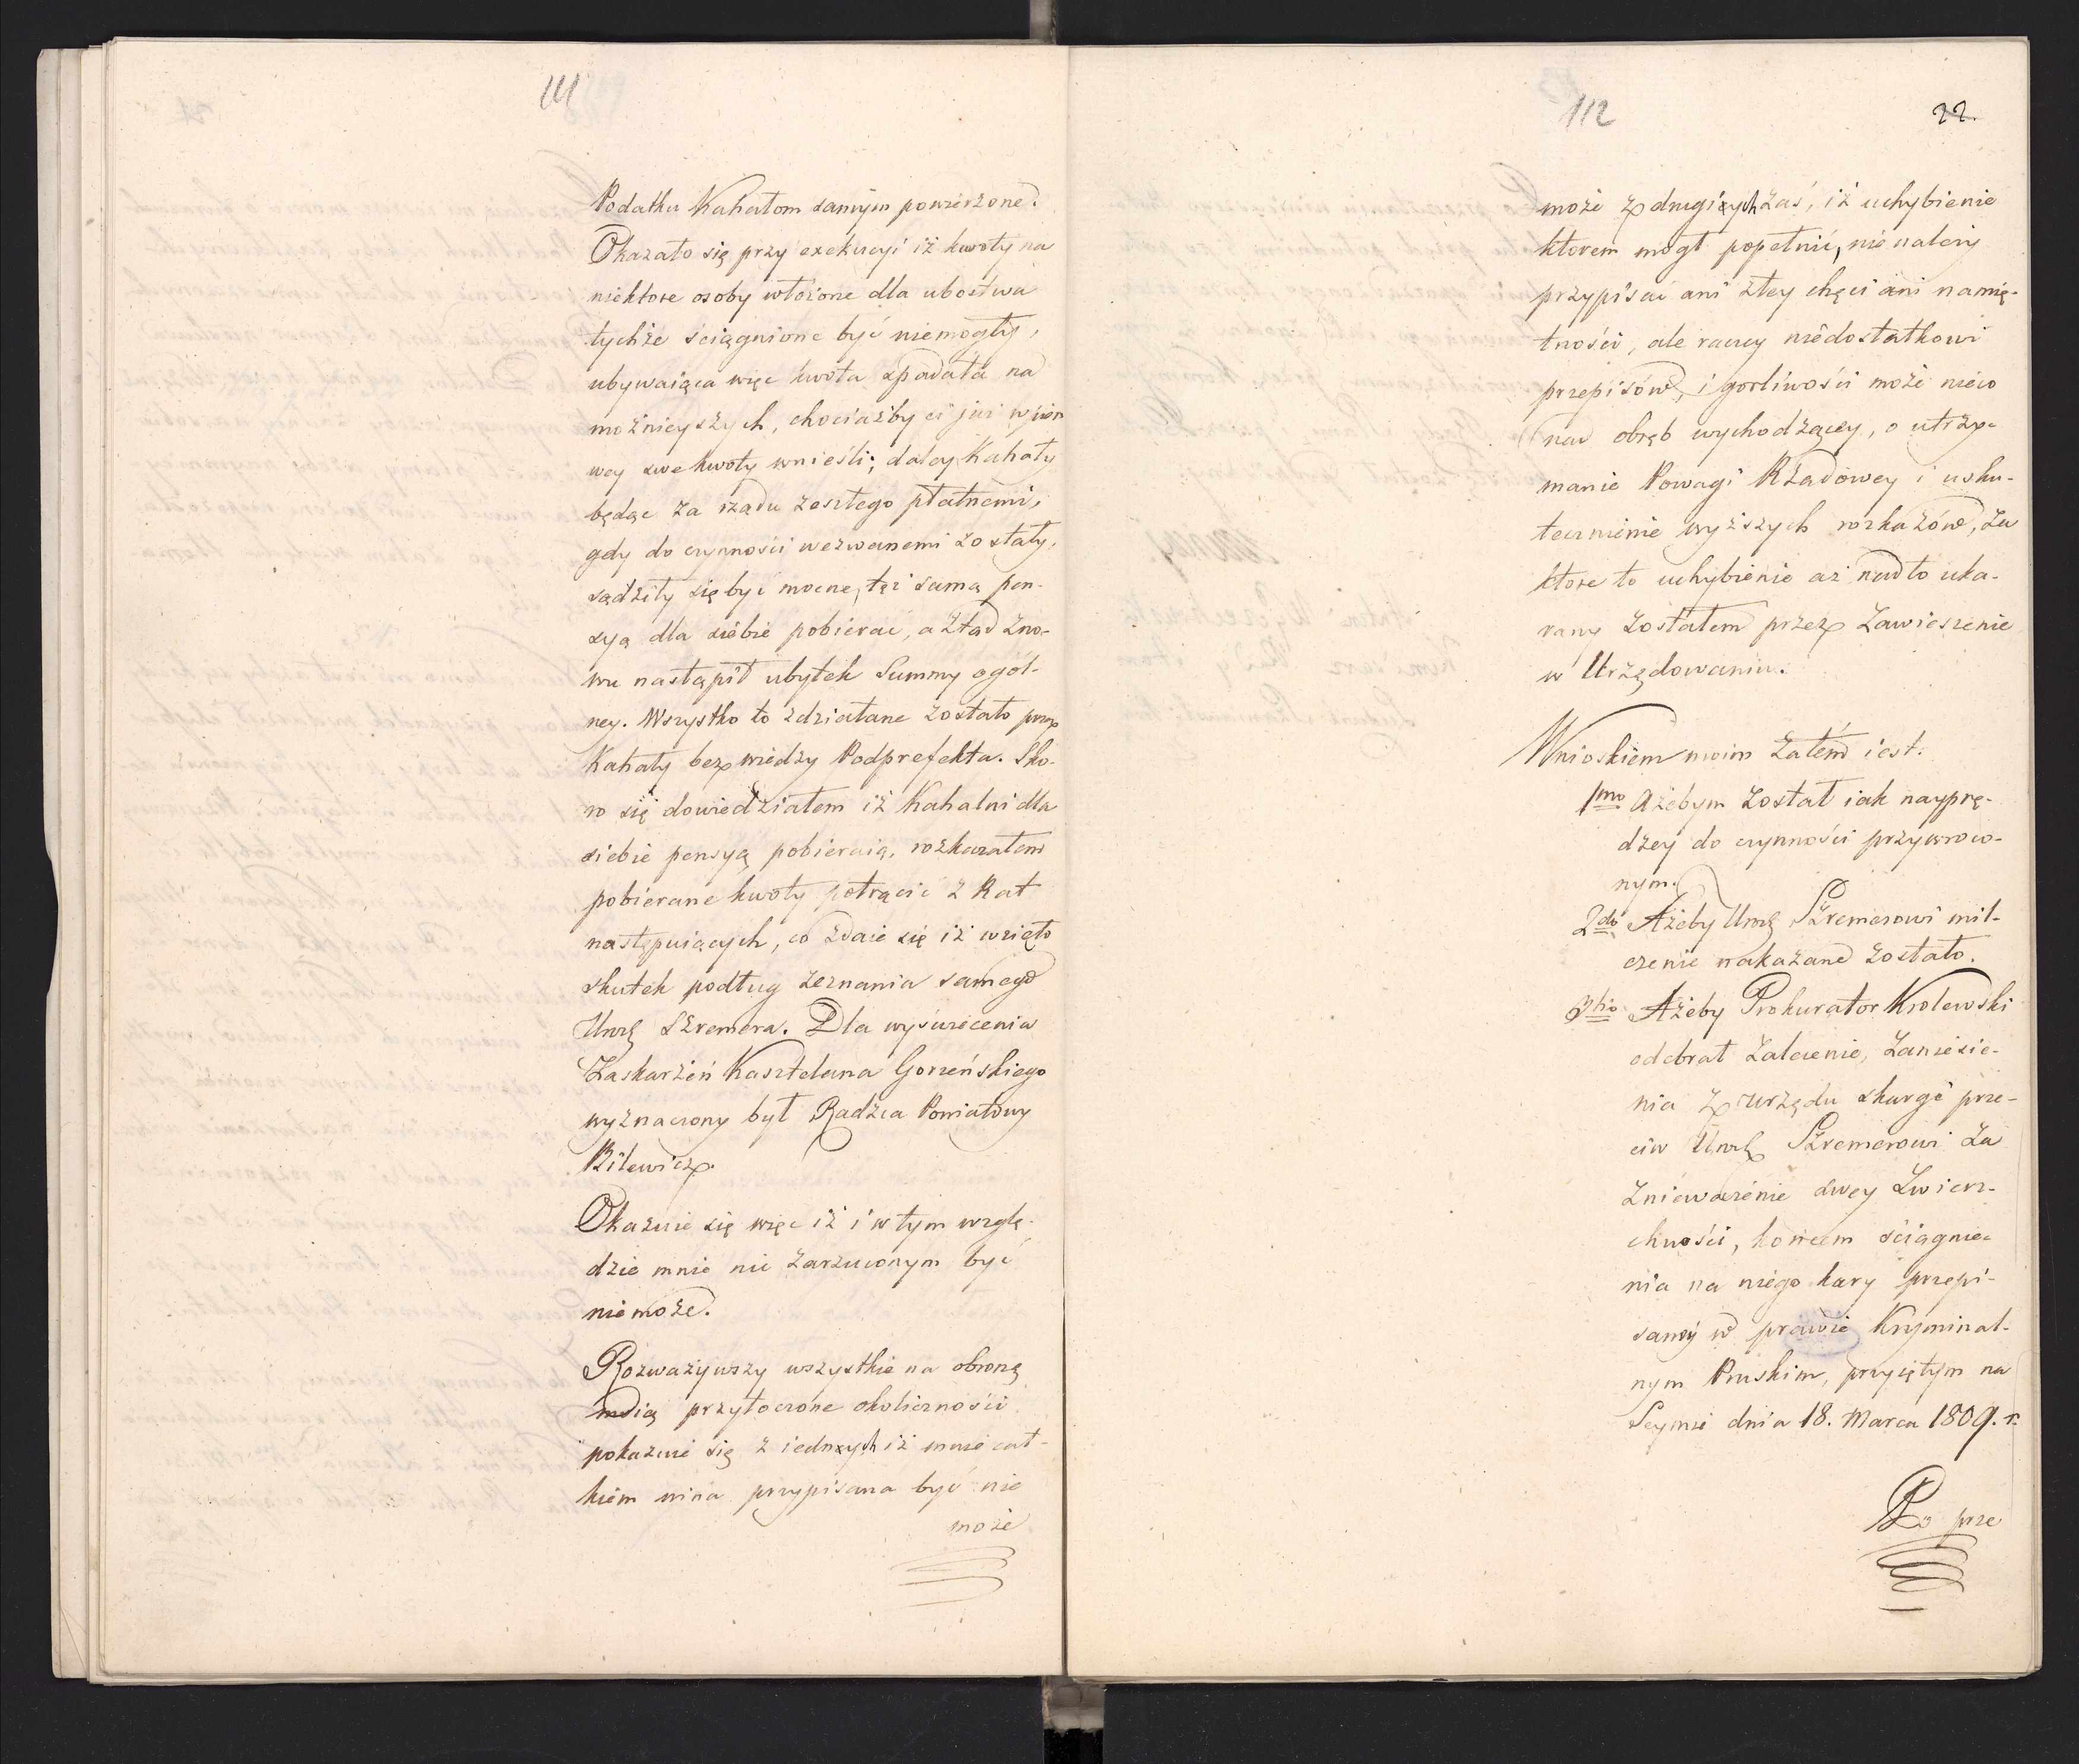 111
Podatku Kahałom samym powierzone.
Okazało się przy exekucyi iż kwoty na
niektore osoby włożone dla ubostwa
tychże ściągnione być niemogły,
ubywaiąca więc kwota spadała na
możnieyszych, chociażby ci już w
wey swe kwoty wnieśli; daley Kahały
będąc za rządu zeszłego płatnemi,
gdy do czynności wezwanemi zostały,
sądziły się być mocne, tęż samą pen-
syą dla siebie pobierać, a ztąd zno-
wu nastąpił ubytek Summy ogól-
ney. Wszystko to zdziałane zostało przez
Kahały bez wiedzy Podprefekta. Sko-
ro się dowiedziałem iż Kahalni dla
siebie pensyą pobieraią, rozkazałem
pobierane kwoty potrącić z Rat
następuiących, co zdaie się iż wzięło
skutek podług zeznania samego
Urzę Szremera. Dla wyświecenia
Zaskarżeń Kasztelana Gorzeńskiego
wyznaczony był Radzca Powiatowy
Bilewicz.
Okazuie się więc iż i w tym wzglę-
dzie mnie nic zarzuconym być
niemoże.
Rozważywszy wszystkie na obronę
moią przytoczone okoliczności
pokazuie się z iednych iż mnie cał-
kiem wina przypisana być nie
może
112
22.
może z drugich zaś, iż uchybienie
ktorem mogł popełnić, nie należy
przypisać ani złey chęci ani namię-
tności, ale raczey niedostatkowi
przepisów, i gorliwości może nieco
nad obręb wychodzącey, o utrzy-
manie Powagi Rządowey i usku-
tecznienie wyższych rozkazów, za
ktore to uchybienie aż nadto uka-
rany zostałem przez zawieszenie
w Urzędowaniu.
Wnioskiem moim zatem iest:
1mo Ażebym został iak nayprę-
dzey do czynności przywroco-
nym.
2do Ażeby Urzę Szremerowi mil-
czenie nakazane zostało.
3tio Ażeby Prokurator Krolewski
odebrał zalecenie, zaniesie-
nia z urzędu skargi prze-
ciw Urzę Szremerowi za
znieważenie swey zwierz-
chności, końcem ściągnie-
nia na niego kary przepi-
saney w prawie Kryminal-
nym Pruskim, przyiętym na
Seymie dnia 18. Marca 1809. r.
Po prze